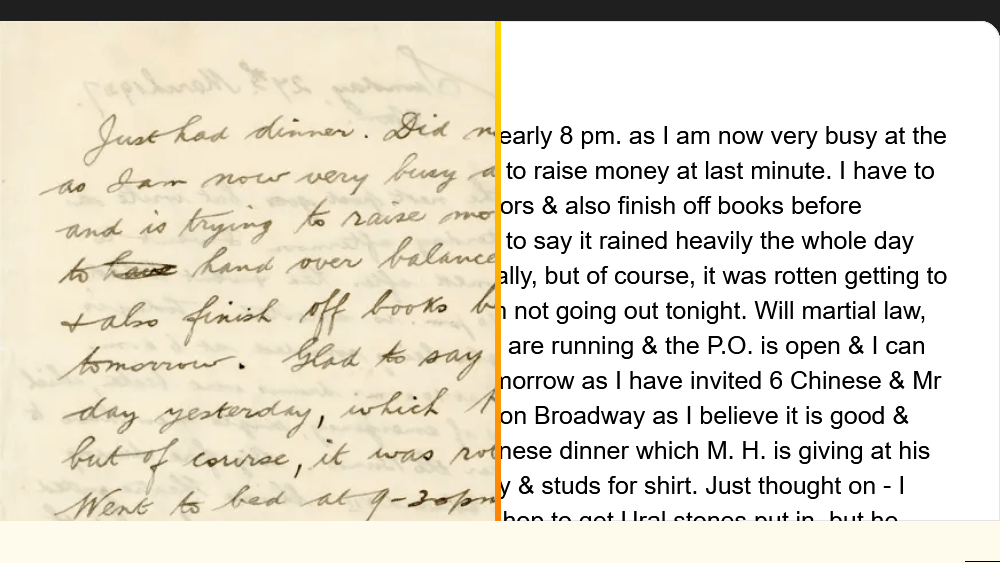 Just had dinner. Did
as I am now very busy
and is trying to raise
to have hand over balance
& also finish off books
tomorrow. Glad to say
day yesterday, which
but of course, it was
Went to bed at 9-30pm
early 8 pm. as I am now very busy at the
to raise money at last minute. I have to
ors & also finish off books before
to say it rained heavily the whole day
ally, but of course, it was rotten getting to
not going out tonight. Will martial law,
are running & the P.O. is open & I can
morrow as I have invited 6 Chinese & Mr
on Broadway as I believe it is good &
nese dinner which M. H. is giving at his
y & studs for shirt. Just thought on - I
hop to get Ural stones put in, but he